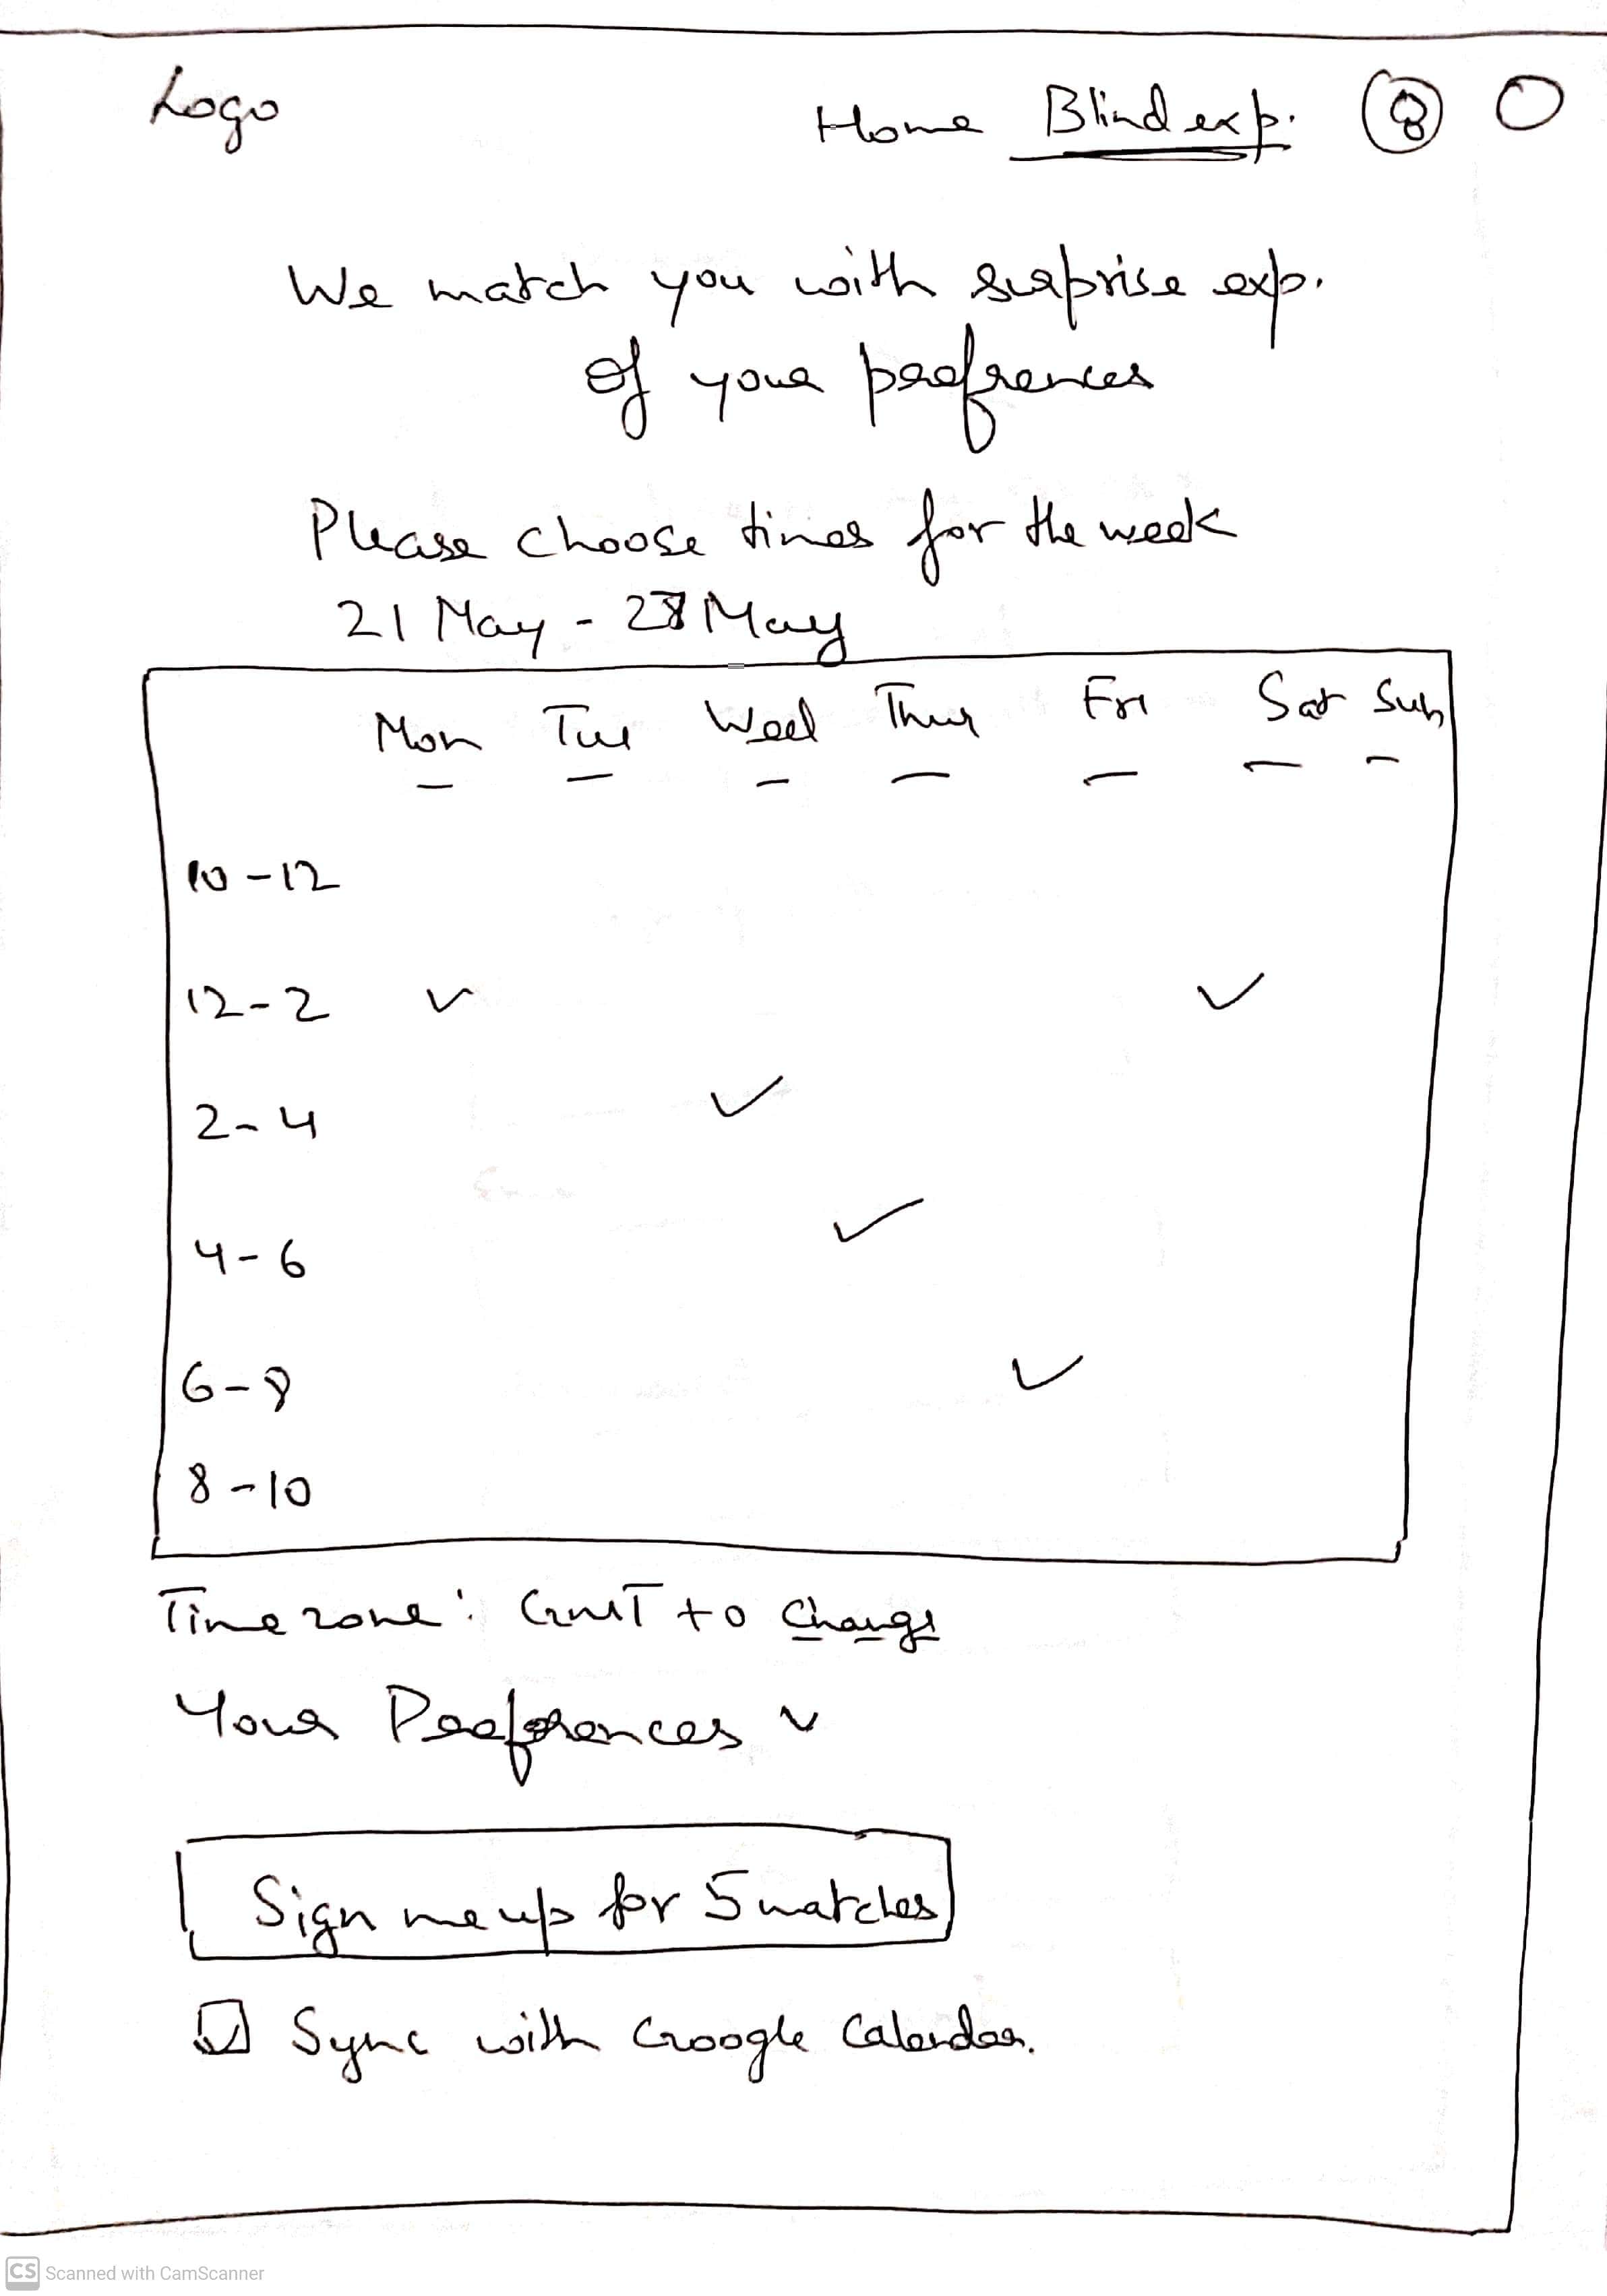 Logo
Home Blind exp.
We match you with surprise exp.
of your prefrences
Please choose times for the week
21 May - 28 May
Mon Tue Wed Thur Fri Sat Sun
10-12
12-2
2-4
4-6
6-8
8-10
Time zone: GMT to change
Your Preferences
Sign me up for 5 matches
Sync with Google Calendar.
CS Scanned with CamScanner